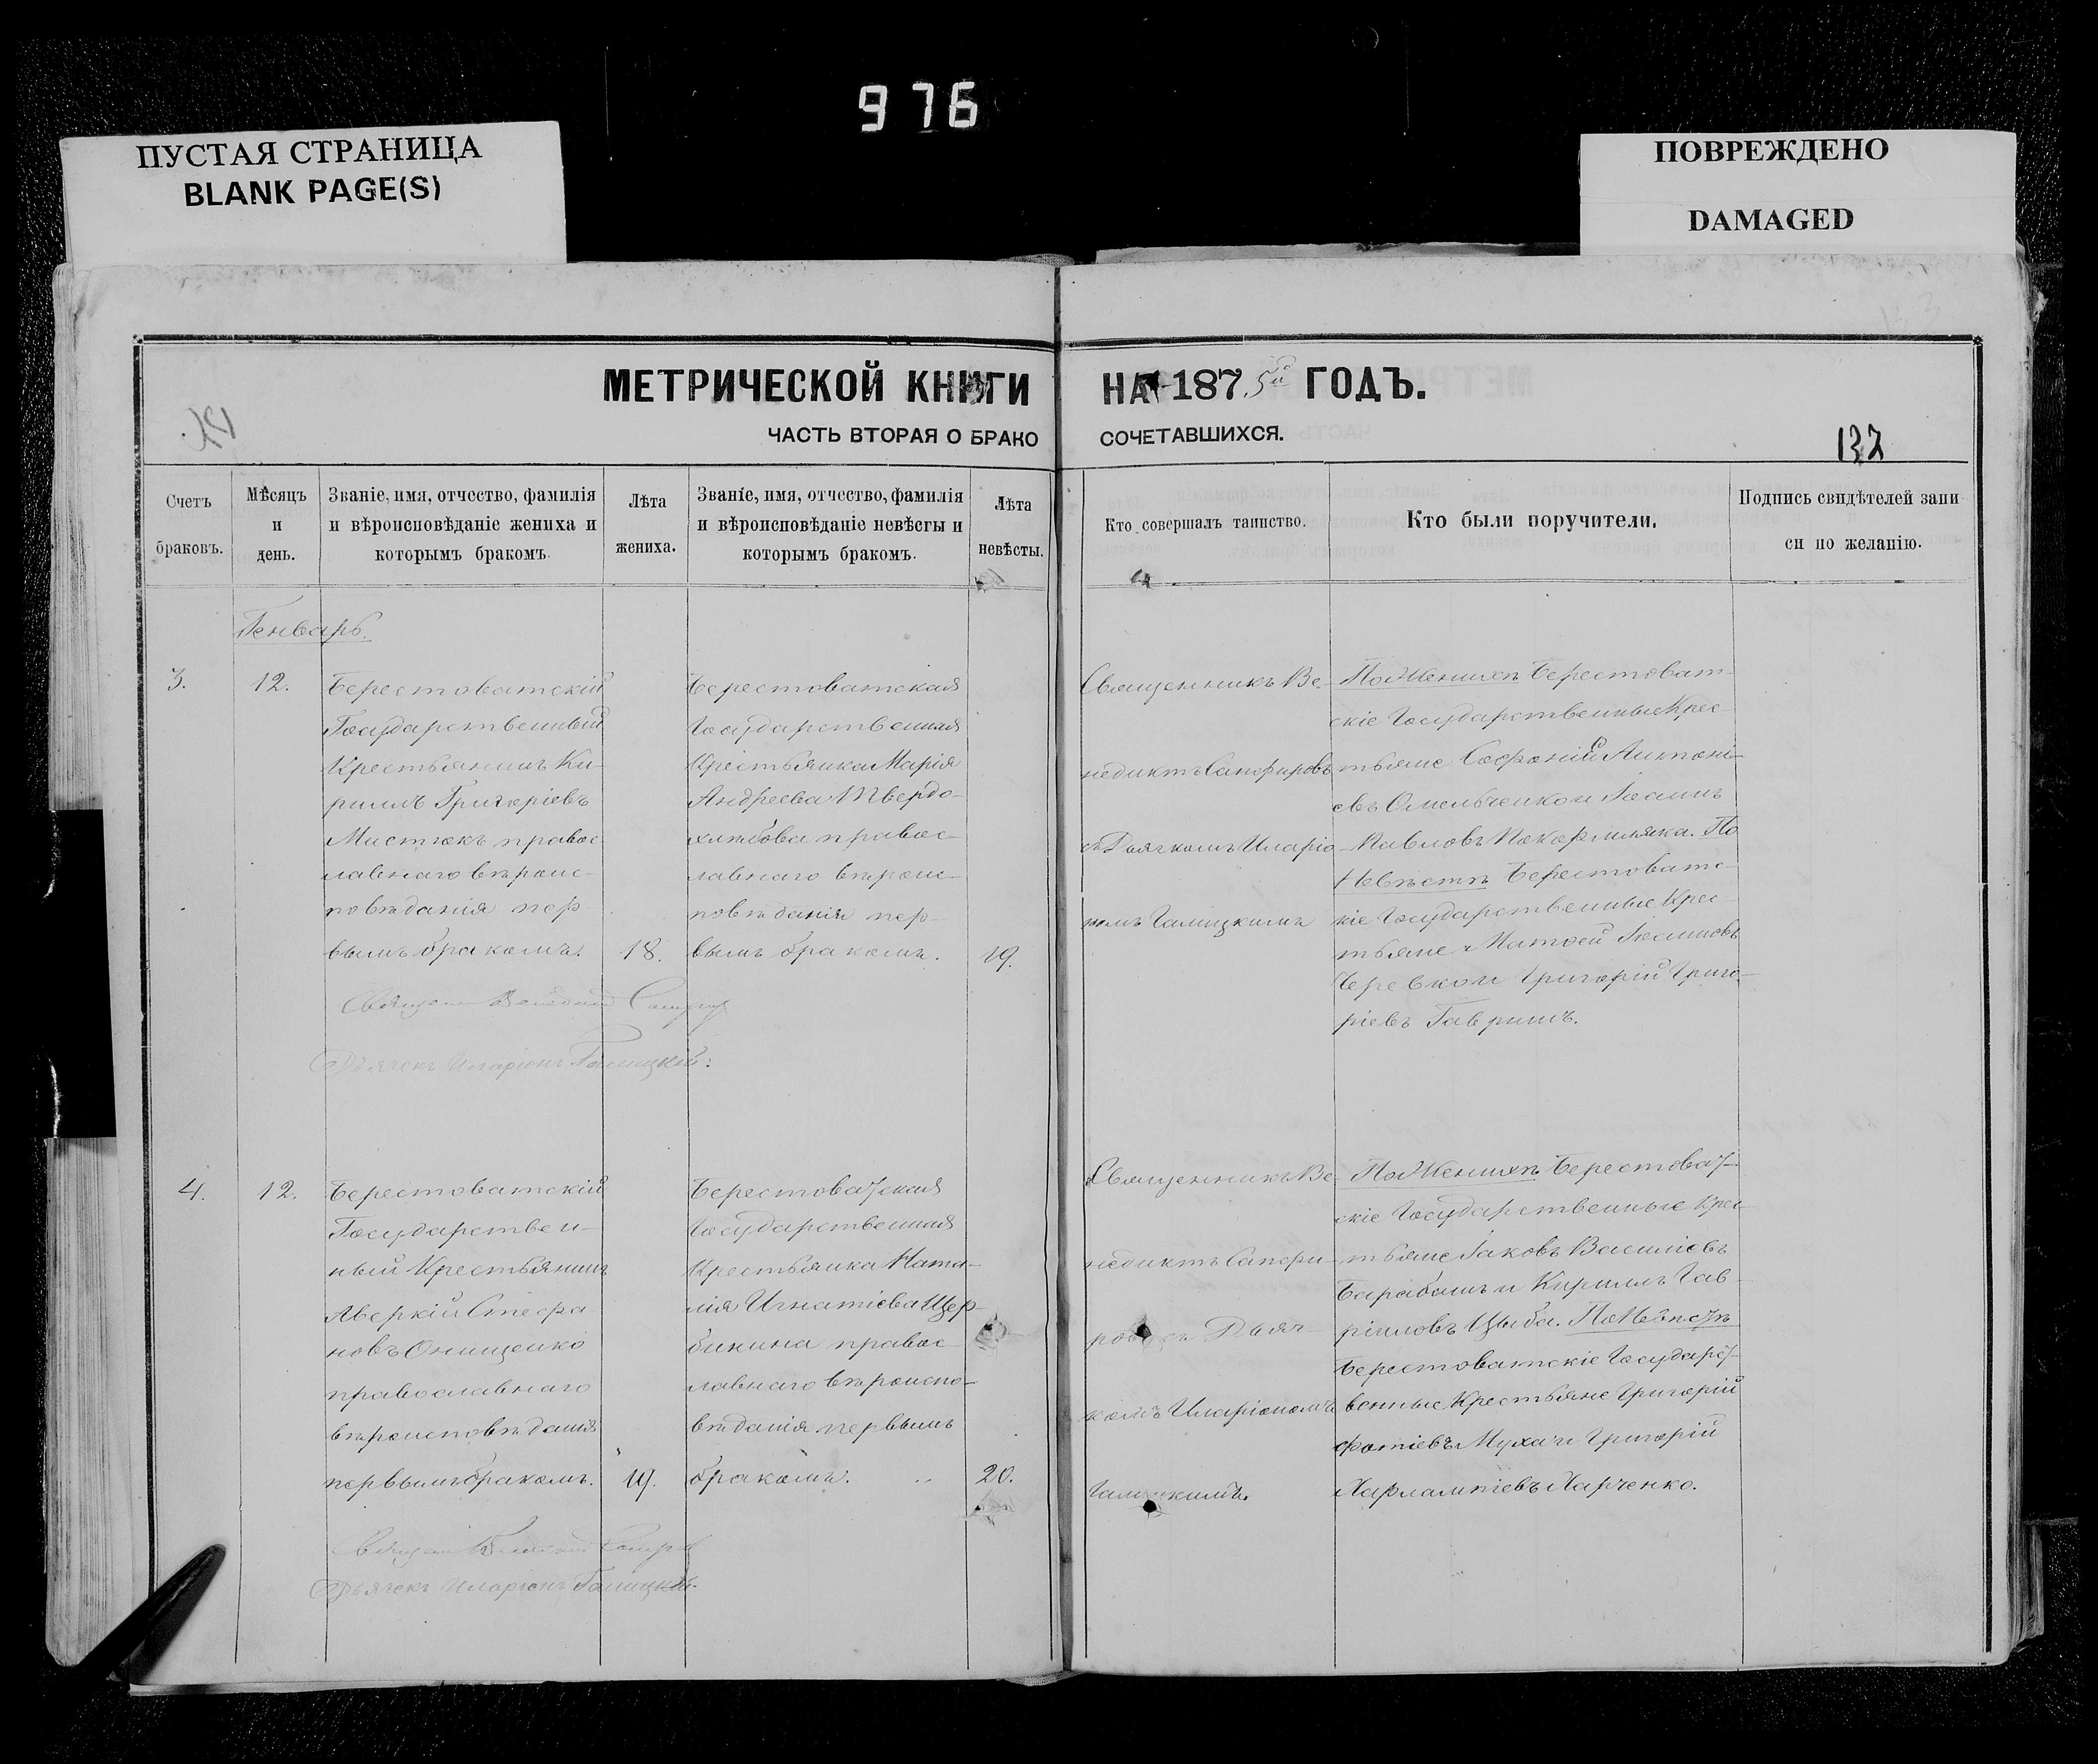 976
ПУСТАЯ СТРАНИЦА
BLANK PAGE(S)
ПОВРЕЖДЕНО
DAMAGED
МЕТРИЧЕСКОЙ КНИГИ НА 1875й ГОДЪ.
ЧАСТЬ ВТОРАЯ О БРАКО СОЧЕТАВШИХСЯ.
132
Счетъ
браковъ.
Мѣсяцъ
и
день.
Званіе, имя, отчество, фамилія
и вѣроисповѣданіе жениха и
которымъ бракомъ.
Лѣта
жениха.
Званіе, имя, отчество, фамилія
и вѣроисповѣданіе невѣсты и
которымъ бракомъ.
Лѣта
невѣсты.
Кто совершалъ таинство.
Кто были поручители.
Подпись свидѣтелей запи
си по желанію.
Генварь.
3.
12.
Берестоватскій
Государственный
Крестьянинъ Ки-
риллъ Григоріевъ
Мистюкъ правос
лавнаго вѣроис-
повѣданія пер-
вымъ бракомъ.
18.
Берестоватская
Государственная
Крестьянка Марія
Андреева Твердо-
хлѣбова правос-
лавнаго вѣроис-
повѣданія пер-
вымъ бракомъ.
19.
Священникъ Ве-
недиктъ Сапфировъ
съ Дьячкомъ Иларіо-
номъ Галицкимъ
По Женихѣ Берестоват-
скіе Государственные Крес-
тьяне Софоній Антоні-
евъ Омельченко и Іоаннъ
Павловъ Покормляка. По
Невѣстѣ Берестоватс-
кіе Государственные Крес-
тьяне Матѳей Іоанновъ
Черевко и Григорій Григо-
ріевъ Гаврилъ.
Дьячекъ Иларіонъ Галицкій.
4.
12.
Берестоватскій
Государствен-
ный Крестьянинъ
Аверкій Стефа
новъ Онищенко
православнаго
вѣроисповѣданія
первымъ бракомъ.
19.
Берестоватская
Государственная
Крестьянка Ната-
лія Игнатіева Щер-
бинина правос-
лавнаго вѣроиспо-
вѣданія первымъ
бракомъ.
20.
Священникъ Ве-
недиктъ Сапфи-
ровъ съ Дьяч-
комъ Иларіономъ
Галицкимъ.
По Женихѣ Берестоват-
скіе Государственные Крес-
тьяне Іаковъ Василіевъ
Барабашъ и Кириллъ Гав-
ріиловъ Цыба. По Невѣстѣ
Берестоватскіе Государст-
венные Крестьяне Григорій
Фотіевъ Муха и Григорій
Харлампіевъ Харченко.
Дьячекъ Иларіонъ Галицкій.